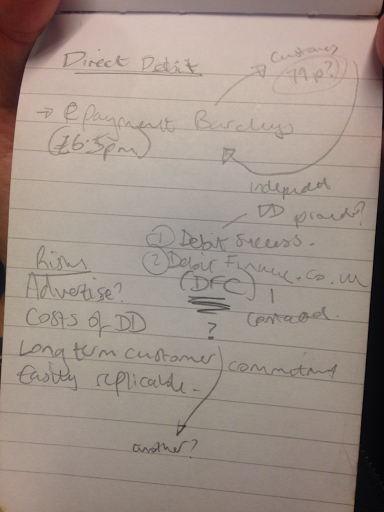 Direct Debit
Customer
→ epayment Barclays
(£6.5pm)
independent
DD provider?
① Debit Success.
② Debit Finance.co.uk
(DFC)
?
Risks
Advertise?
Costs of DD
Long term customer commitment
Easily replicable.
another?